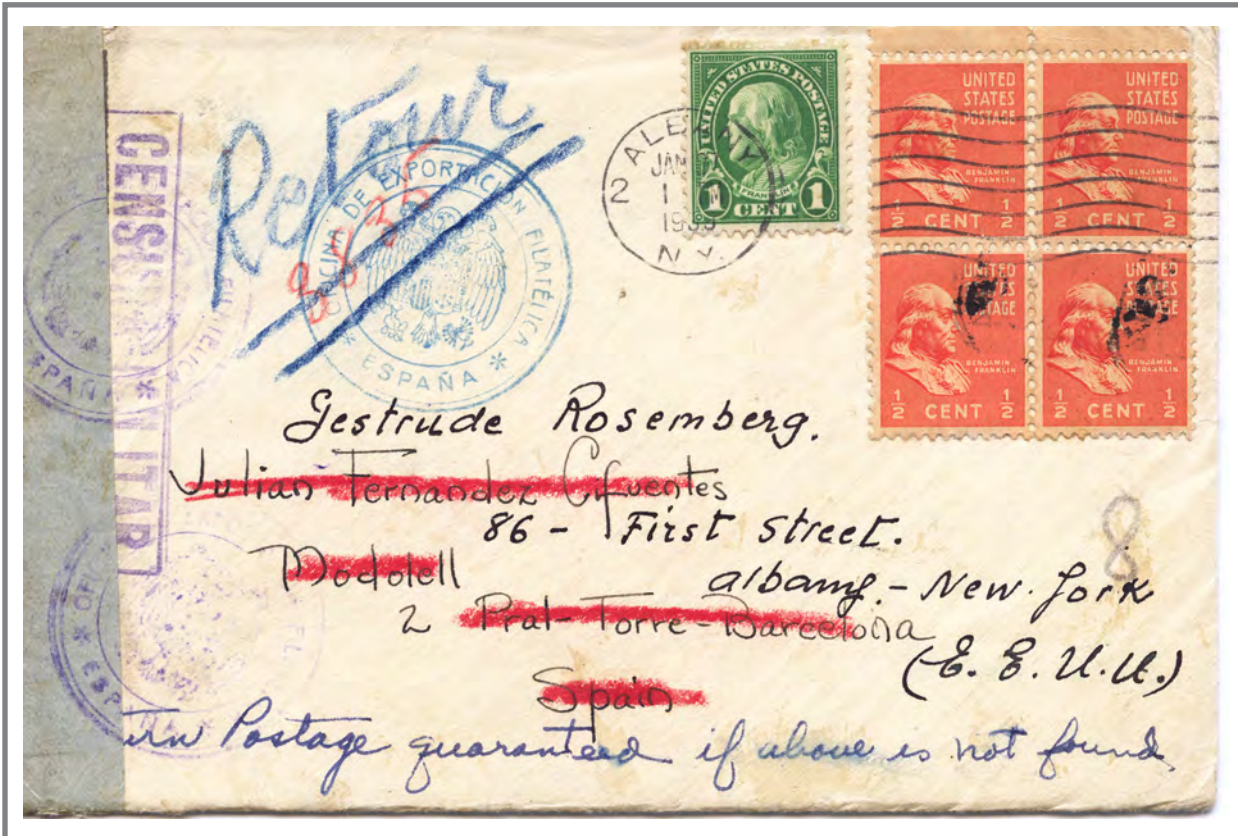 Retour
CENSURA MILITAR
OFICINA DE EXPORTACION FILATÉLICA
* ESPAÑA *
2 ALBANY
JAN
1
N.Y.
UNITED STATES POSTAGE
FRANKLIN
1 CENT 1
UNITED STATES POSTAGE
BENJAMIN FRANKLIN
1/2 CENT 1/2
UNITED STATES POSTAGE
BENJAMIN FRANKLIN
1/2 CENT 1/2
UNITED STATES POSTAGE
BENJAMIN FRANKLIN
1/2 CENT 1/2
UNITED STATES POSTAGE
BENJAMIN FRANKLIN
1/2 CENT 1/2
Gestrude Rosemberg.
Julian Fernandez Cifuentes
86 - First Street.
Modolell
albany. - New. York
2 Prat - Torre - Barcelona
(E. E. U. U.)
Spain
8
Postage guaranteed if above is not found.